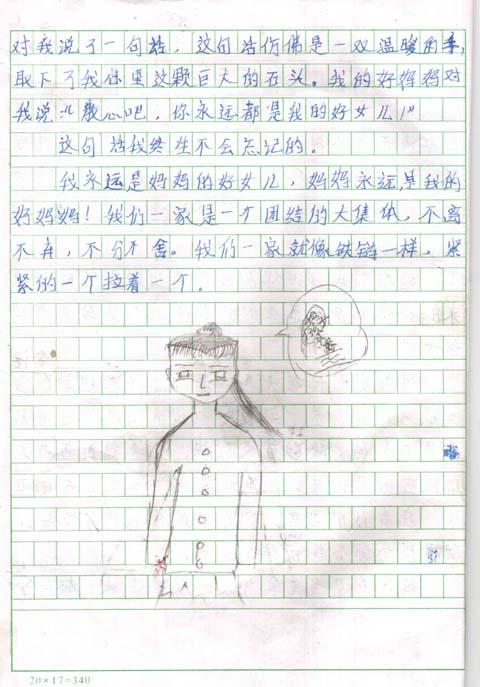 对我说了一句话，这句话仿佛是一双温暖的手，
取下了我心里这颗巨大的石头。我的好妈妈对
我说：“放心吧，你永远都是我的好女儿！”
这句话我终生不会忘记的。
我永远是妈妈的好女儿，妈妈永远是我的
好妈妈！我们一家是一个团结的大集体，不离
不弃，不分不舍。我们一家就像铁链一样，紧
紧的一个拉着一个。
20×17=340